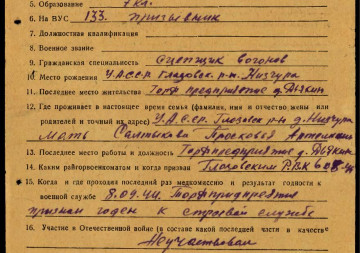 5. Образование 7 кл.
6. На ВУС 133. призывник
7. Должностная квалификация
8. Военное звание
9. Гражданская специальность Сцепщик вогонов
10. Место рождения У.А.С.С.р. Глазовск. р-н.
11. Последнее место жительства Торф предприятие д. Дзякин
12. Где проживает в настоящее время семья (фамилия, имя и отчество жены или
родителей и точный их адрес) У.А.С.Ср. Глазовс р-н д.
Мать Салтыкова
13. Последнее место работы и должность Торфпредприятие д. Дзякин
14. Каким райгорвоенкоматом и когда призван Глазовским Р.В.К
15. Когда и где проходил последний раз медкомиссию и результат годности к
военной службе 8.09.44. Торфпридприятия
признан годен к строевой службе
16. Участие в Отечественной войне (в составе какой последней части в качестве
Неучаствовал